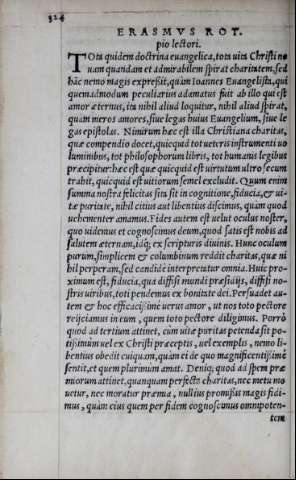 324
ERASMVS ROT.
pio lectori.
TOta quidem doctrina euangelica, tota uita Christi no
uam quandam et admirabilem spirat charitatem, sed
hāc nemo magis expreßit, quàm Ioannes Euangelista, qui
quemadmodum peculiarius adamatus fuit ab illo qui est
amor æternus, ita nihil aliud loquitur, nihil aliud spirat,
quàm meros amores, siue legas huius Euangelium, siue le
gas epistolas. Nimirum hæc est illa Christiana charitas,
quæ compendio docet, quicquid tot ueteris instrumenti uo
luminibus, tot philosophorum libris, tot humanis legibus
præcipitur: hæc est quæ quicquid est uirtutum ultro secum
trahit, quicquid est uitiorum semel excludit. Quum enim
summa nostra felicitas sita sit in cognitione, fiducia, & ui-
tæ puritate, nihil citius aut libentius discimus, quàm quod
uehementer amamus. Fides autem est uelut oculus noster,
quo uidemus et cognoscimus deum, quod satis est nobis ad
salutem æternam, idq; ex scripturis diuinis. Hunc oculum
purum, simplicem & columbinum reddit charitas, quæ ni
hil perperam, sed candidè interpretatur omnia. Huic pro-
ximum est, fiducia, qua diffisi mundi præsidijs, diffisi no-
stris uiribus, toti pendemus ex bonitate dei. Persuadet au-
tem & hoc efficacißimè uerus amor, ut nos toto pectore
reijciamus in eum, quem toto pectore diligimus. Porrò
quod ad tertium attinet, cùm uitæ puritas petenda sit po-
tißimùm uel ex Christi præceptis, uel exemplis, nemo li-
bentius obedit cuiquam, quàm ei de quo magnificentißimè
sentit, et quem plurimùm amat. Deniq; quod ad spem præ
miorum attinet, quanquam perfecta charitas, nec metu mo
uetur, nec moratur præmia, nullius promißis magis fidi-
mus, quàm eius quem per fidem cognoscimus omnipoten-
tem